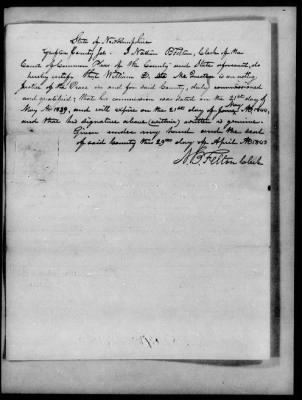 State of New Hampshire
Grafton County Ss. I Nathan B Felton, Clerk of the
Court of Common Pleas of the County and State aforesaid, do
hereby certify that William D. Mc Questen is an acting
Justice of the Peace in and for said County, duly commissioned
and qualified; that his commission was dated on the 21st day of
May AD 1839, and will expire on the 21st day of
and that his signature above (written) is genuine.
Given under my hand and the seal
of said County this 29th day of April AD 1843
N. B Felton Clerk